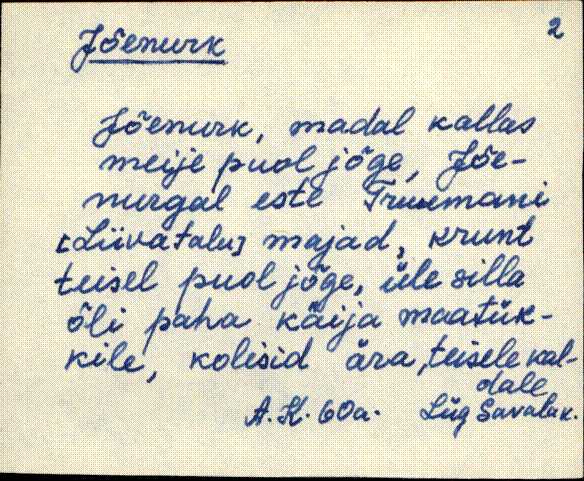 2
Jõenurk
Jõenurk, madal kallas
meije puol jõge, Jõe-
nurgal este Truuemani
[Liivatalu] majad, krunt
teisel puol jõge, üle silla
õli paha käija maatük-
kile, kolisid ära, teisele kal-
dale
A. K. 60a. Lüg Savalak.